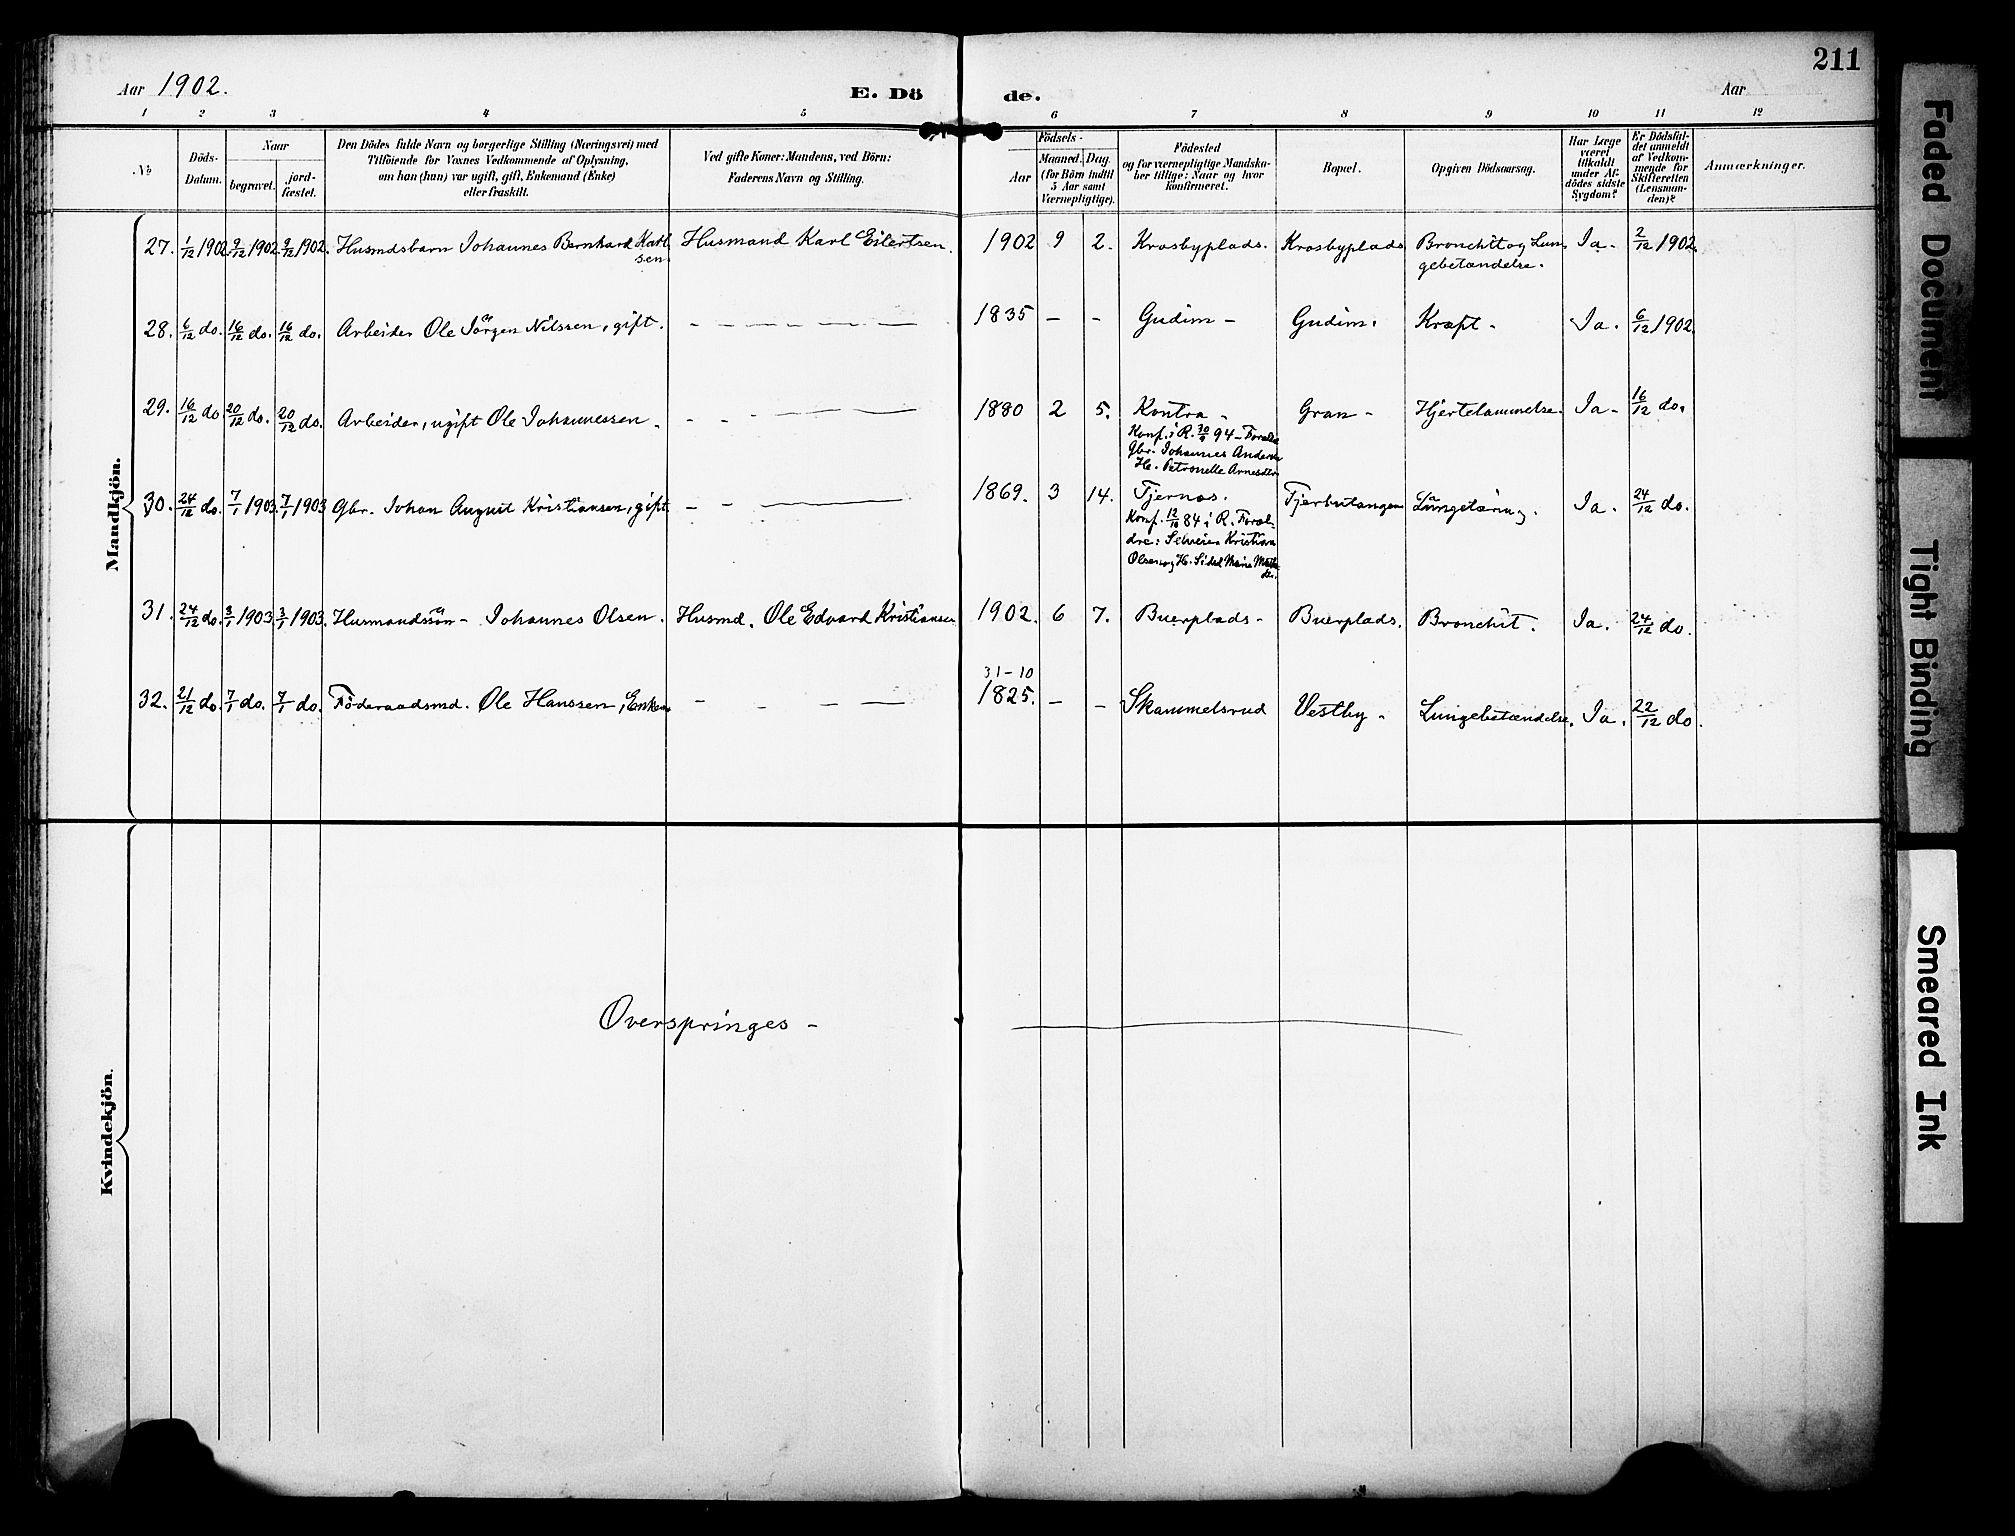 Aar 1902. E. Dö de. Aar 211
1 2 3 4 5 6 7 8 9 10 11 12
No
Döds-
Datum.
Naar
begravet.
jord-
fæstet.
Den Dödes fulde Navn og borgerlige Stilling (Næringsvei) med
Tilföiende for Voxnes Vedkommende af Oplysning,
om han (hun) var ugift, gift, Enkemand (Enke)
eller fraskilt.
Ved gifte Koner: Mandens, ved Börn:
Faderens Navn og Stilling.
Födsels-
Aar
Maaned. Dag.
(for Börn indtil
5 Aar samt
Værnepligtige).
Födested
og for værnepligtige Mandska-
ber tillige: Naar og hvor
konfirmeret.
Bopæl.
Opgiven Dödsaarsag.
Har Læge
været
tilkaldt
under Af-
dödes sidste
Sygdom?
Er Dödsfal-
det anmeldt
af Vedkom-
mende for
Skifteretten
(Lensman-
den)?
Anmærkninger.
Mandkjön.
27. 1/12 1902. 9/12 1902. 9/12 1902. Husmdsbarn Johannes Bernhard Karl- Husmand Karl Eilertsen. 1902 9 2. Krosbyplads. Krosbyplads Bronchit og Lun- Ja - 2/12 1902.
sen. gebetændelse.
28. 6/12 do. 16/12 do. 16/12 do. Arbeider Ole Jörgen Nilssen, gift. - - - - - - 1835 - - Gudim - Gudim. Kræft - Ja. 6/12 1902.
29. 16/12 do 20/12 do. 20/12 do. Arbeider, ugift Ole Johannessen. - - - - - 1880 2 5. Kontra - Gran - Hjertelammelse. Ja - 16/12 do.
Konf. i R. 30/9 94 - Foræld
Gbr. Johannes Anders
H. Petronelle Arnesdtr
30. 24/12 do. 7/1 1903. 7/1 1903 Gbr. Johan August Kristiansen, gift - - - - 1869. 3 14. Tjernæs. Tjerbutangen Lungetæring. Ja. 24/12 do.
Konf. 12/10 84 i R. Foræl-
dre: Selveier Kristian
Olsen og H. Sidsel Marie
31. 24/12 do. 3/1 1903. 3/1 1903. Husmandssön - Johannes Olsen. Husmd. Ole Edvard Kristiansen 1902. 6 7. Buerplads - Buerplads. Bronchit. Ja. 24/12 do.
31-10
32. 21/12 do. 7/1 do. 7/1 do. Föderaadsmd. Ole Hanssen, Enkem - - - - 1825. - - Skammelsrud Vestby - Lungebetændelse. Ja. 22/12 do.
Kvindekjön.
Overspringes -
Faded Document
Tight Binding
Smeared Ink